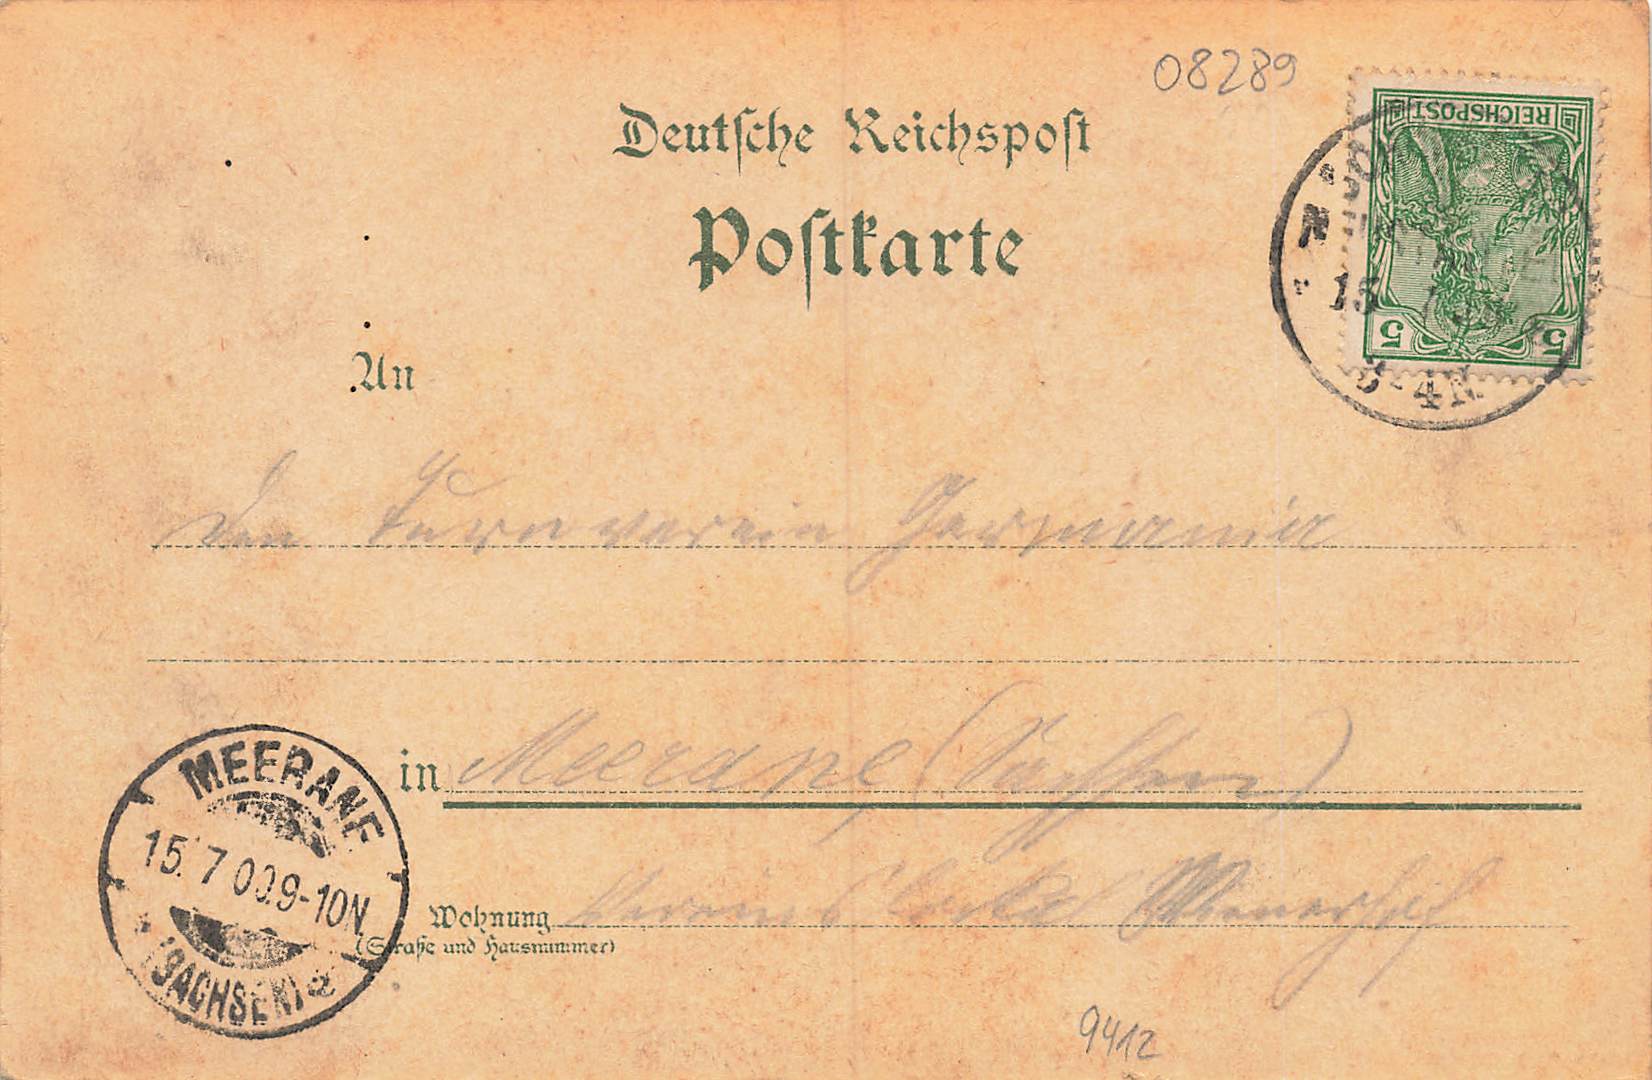 08289
Deutsche Reichspost
Postkarte
REICHSPOST
5 5
15
3-4N
An
den Turnverein Germania
in Meerane (Sachsen)
MEERANE
15. 7 00. 9-10N.
(SACHSEN) a
Wohnung Vereinslokal
(Straße und Hausnummer)
9412